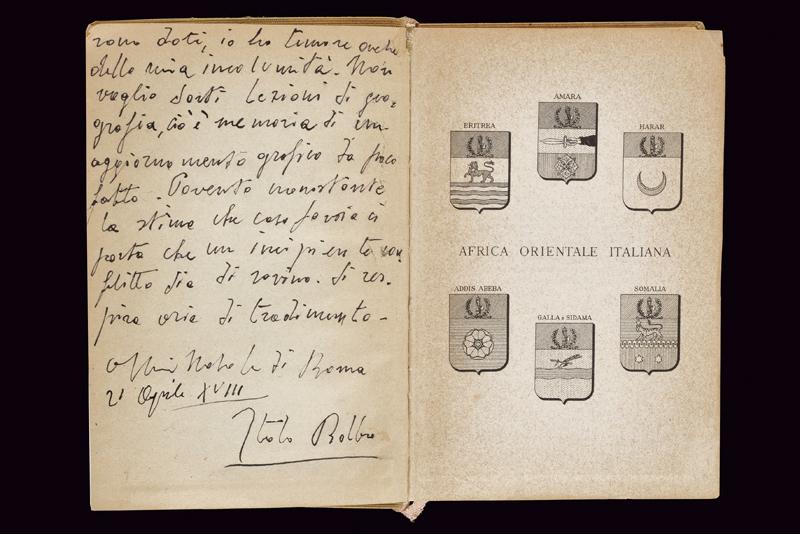 sono doti, io ho timore anche
della mia incolumità. Non
voglio darti lezioni di geo-
grafia, ciò è memoria di un
aggiornamento grafico da poco
fatto. Pavento nonostante
la stima che casa Savoia ci
porta che un incipiente con-
flitto sia di rovina. Si res-
pira aria di tradimento -
Natale di Roma
21 Aprile XVIII
Italo Balbo
AMARA
ERITREA
HARAR
AFRICA ORIENTALE ITALIANA
ADDIS ABEBA
SOMALIA
GALLA e SIDAMA